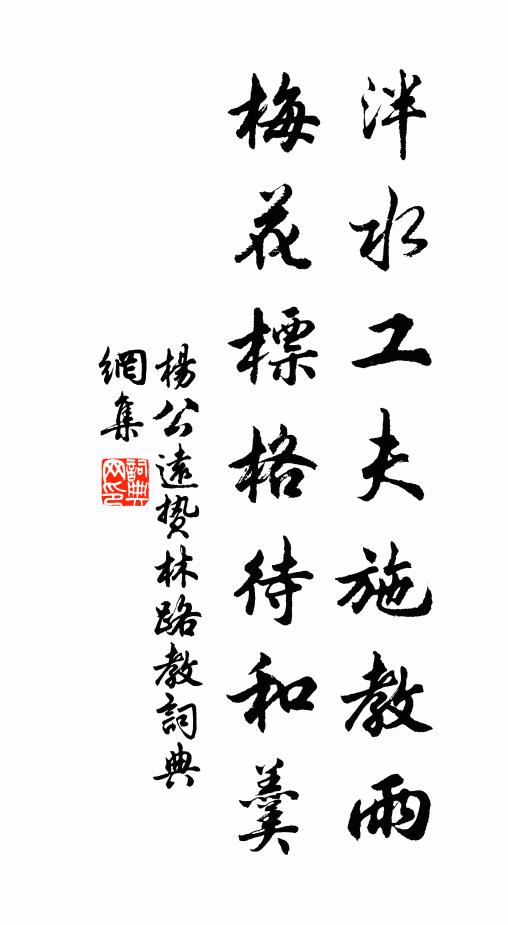 泮水工夫施教雨
梅花標格待和羹
楊公遠贄林路教詞典
網集
詞典
网印